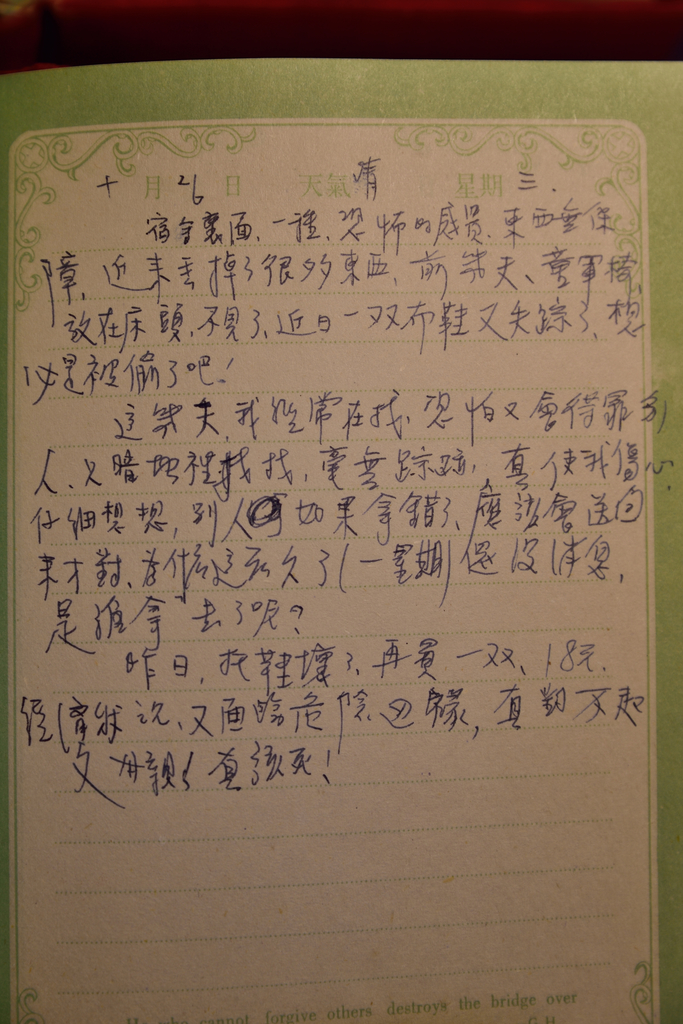 十月26日 天氣晴 星期三.
宿舍裏面、一種、恐怖的感員、東西無保
障、近來丟掉了很多東西、前幾天、童軍椅、
放在床頭、不見了、近日一双布鞋又失踪了、想
必是被偷了吧!
這幾天,我經常在找、恐怕又會得罪别
人、只暗地裡找找,毫無踪跡,真使我傷心.
仔細想想,别人如果拿錯了、應該會送回
來才對、為什麼這么久了(一星期)還没消息,
是誰拿去了呢?
昨日,拖鞋壞了、再買一双、18元.
經濟狀況、又面臨危險边緣,真對不起
父母親!真該死!
He who cannot forgive others destroys the bridge over
G.H.